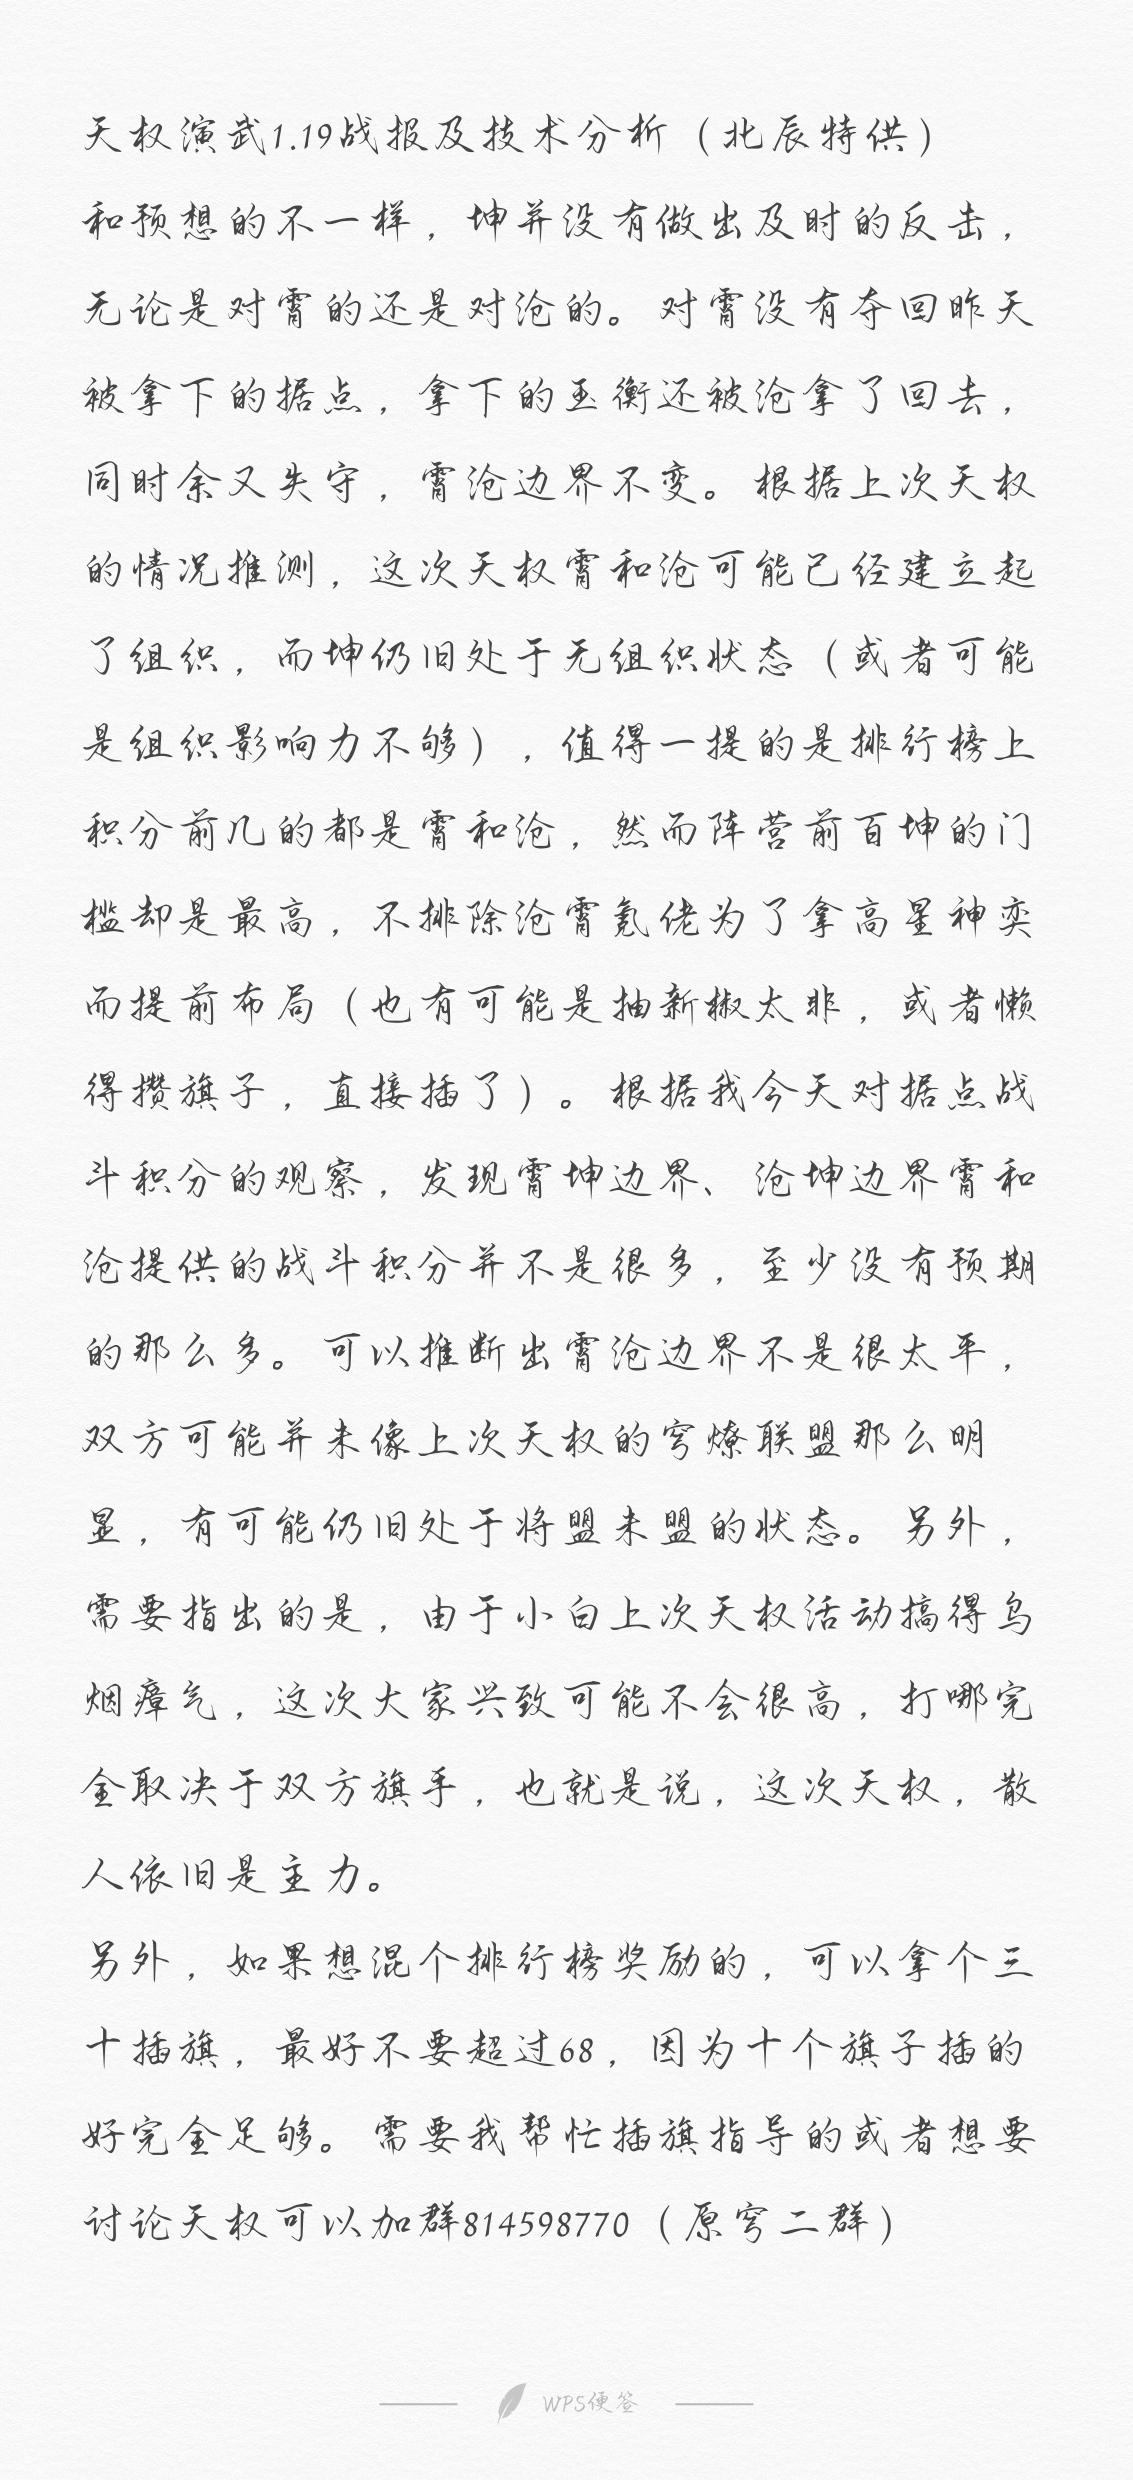 天权演武1.19战报及技术分析（北辰特供）
和预想的不一样，坤并没有做出及时的反击，
无论是对霄的还是对沧的。对霄没有夺回昨天
被拿下的据点，拿下的玉衡还被沧拿了回去，
同时余又失守，霄沧边界不变。根据上次天权
的情况推测，这次天权霄和沧可能已经建立起
了组织，而坤仍旧处于无组织状态（或者可能
是组织影响力不够），值得一提的是排行榜上
积分前几的都是霄和沧，然而阵营前百坤的门
槛却是最高，不排除沧霄氪佬为了拿高星神奕
而提前布局（也有可能是抽新椒太非，或者懒
得攒旗子，直接插了）。根据我今天对据点战
斗积分的观察，发现霄坤边界、沧坤边界霄和
沧提供的战斗积分并不是很多，至少没有预期
的那么多。可以推断出霄沧边界不是很太平，
双方可能并未像上次天权的穹燎联盟那么明
显，有可能仍旧处于将盟未盟的状态。另外，
需要指出的是，由于小白上次天权活动搞得乌
烟瘴气，这次大家兴致可能不会很高，打哪完
全取决于双方旗手，也就是说，这次天权，散
人依旧是主力。
另外，如果想混个排行榜奖励的，可以拿个三
十插旗，最好不要超过68，因为十个旗子插的
好完全足够。需要我帮忙插旗指导的或者想要
讨论天权可以加群814598770（原穹二群）
WPS便签